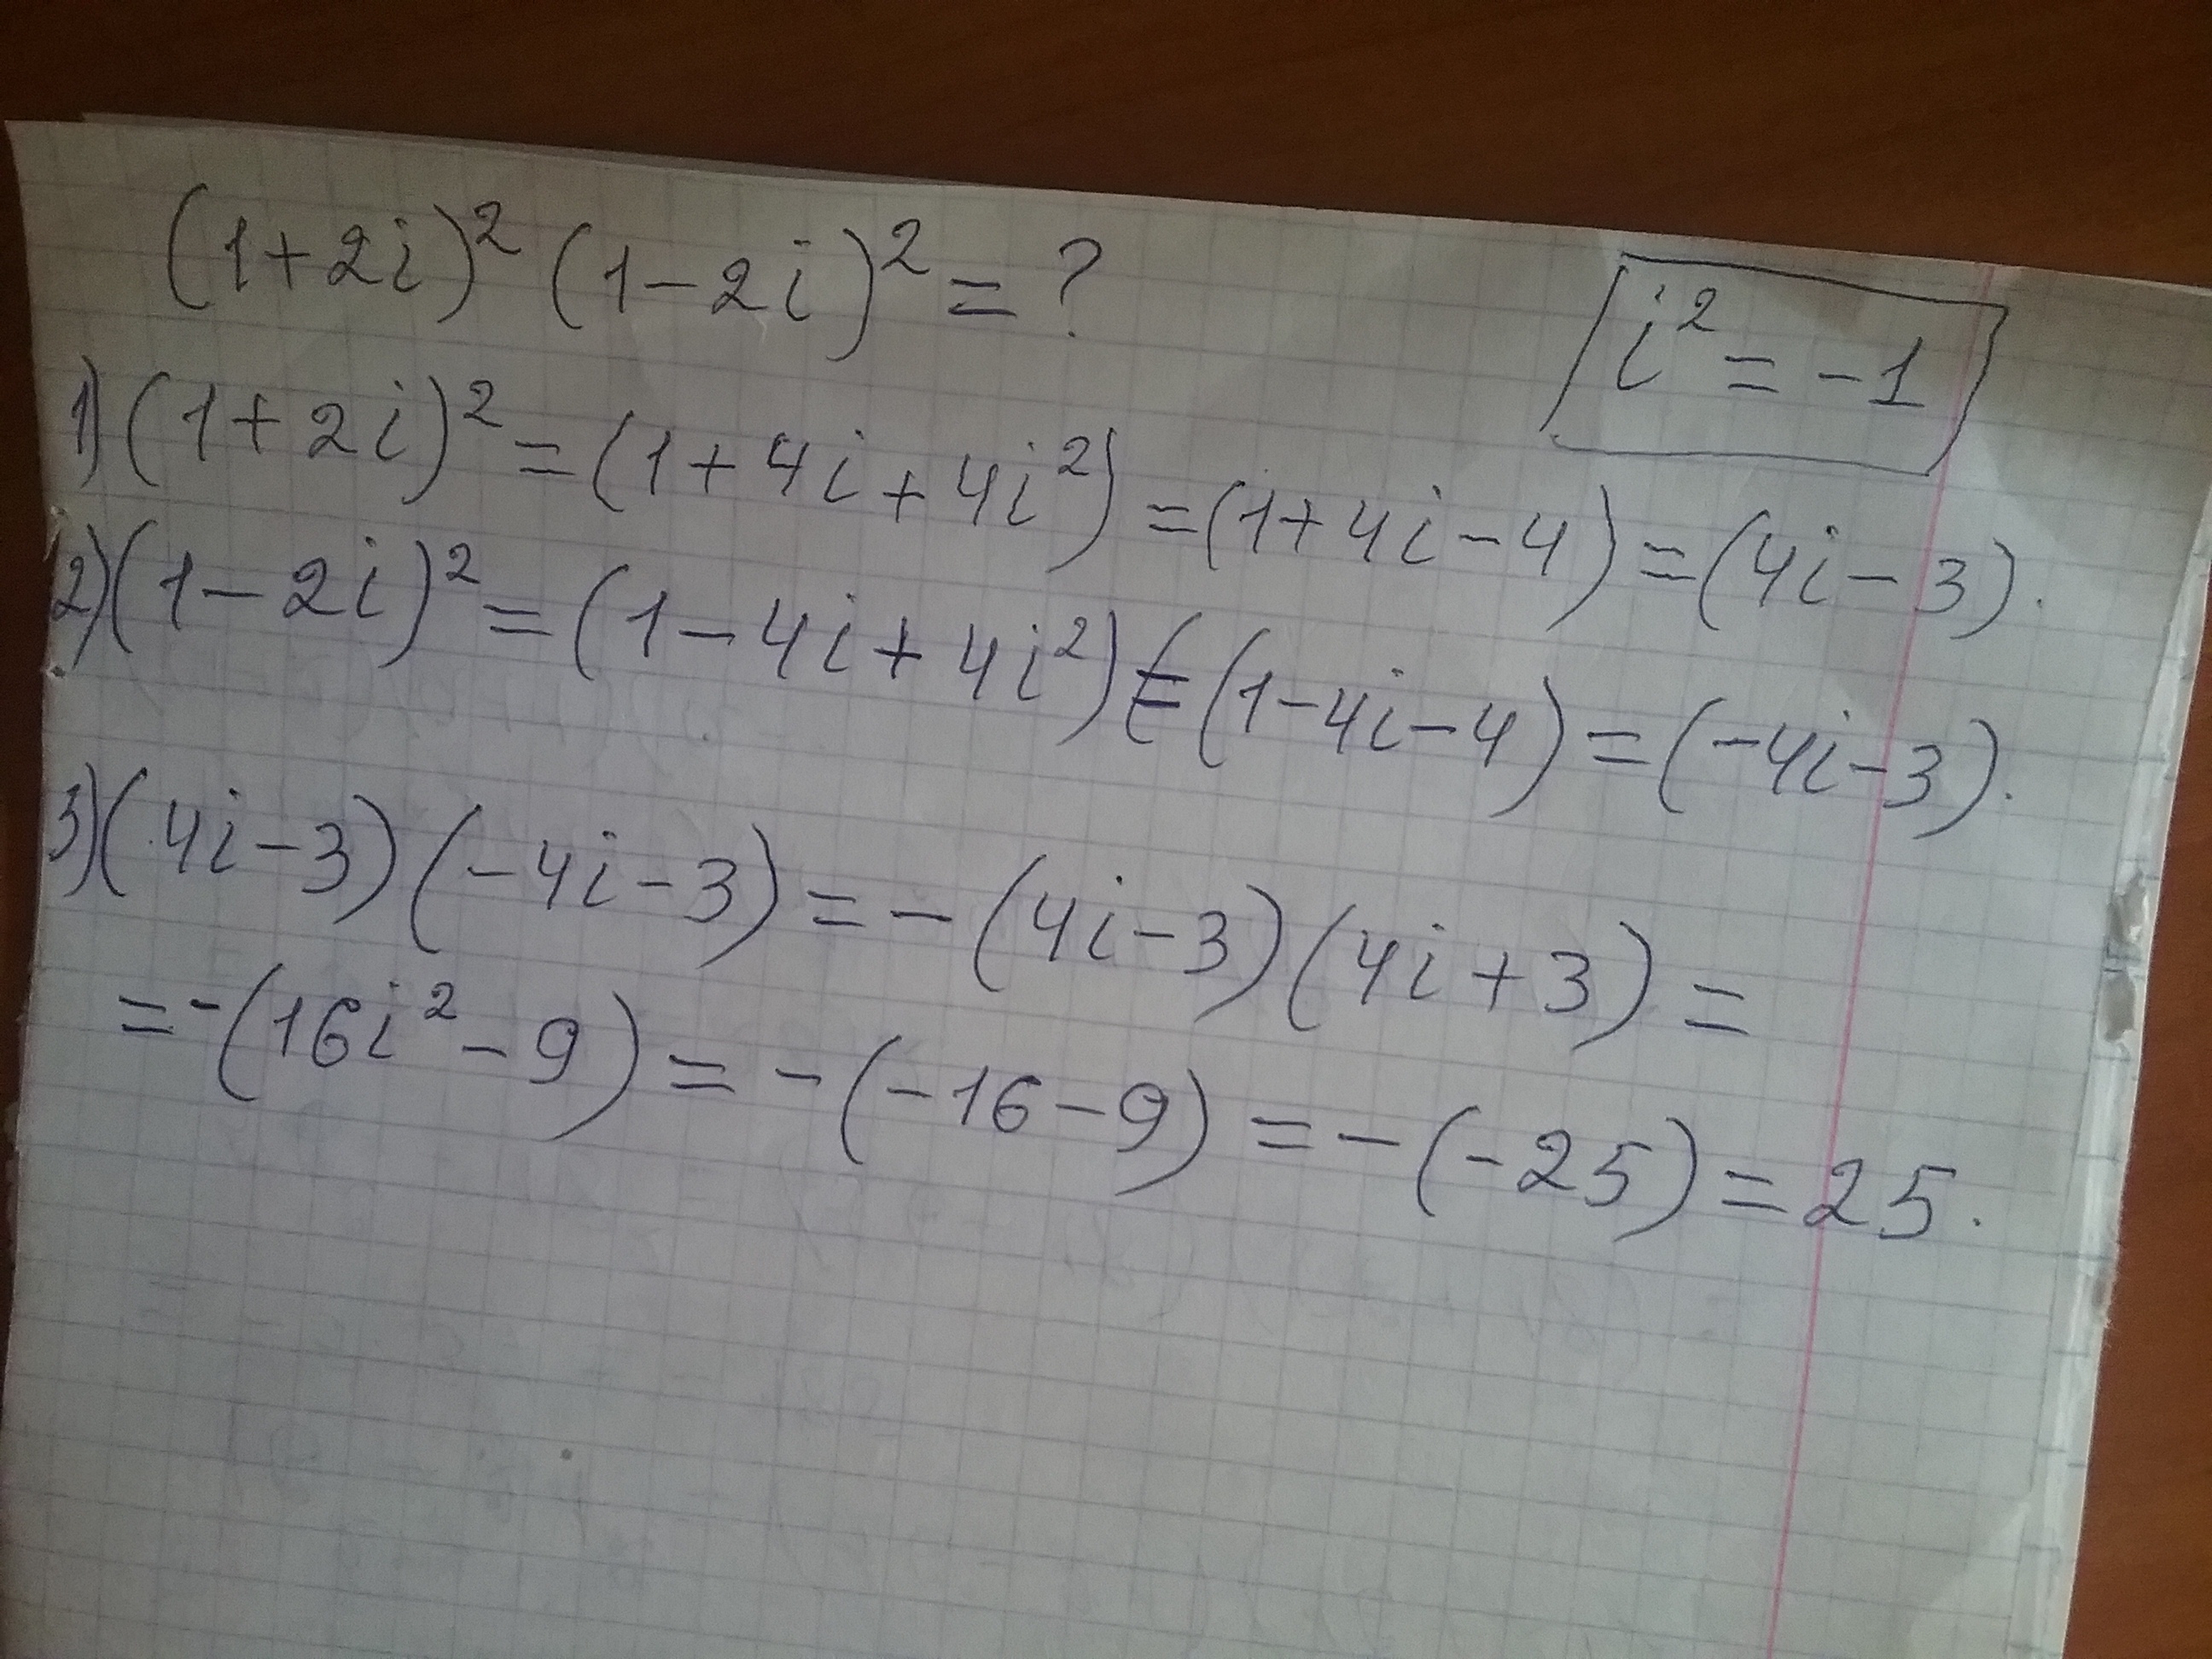 (1+2i)² (1-2i)² = ?
i² = -1
1) (1+2i)² = (1+4i+4i²) = (1+4i-4) = (4i-3).
2) (1-2i)² = (1-4i+4i²) = (1-4i-4) = (-4i-3).
3) (4i-3)(-4i-3) = -(4i-3)(4i+3) =
= -(16i²-9) = -(-16-9) = -(-25) = 25.